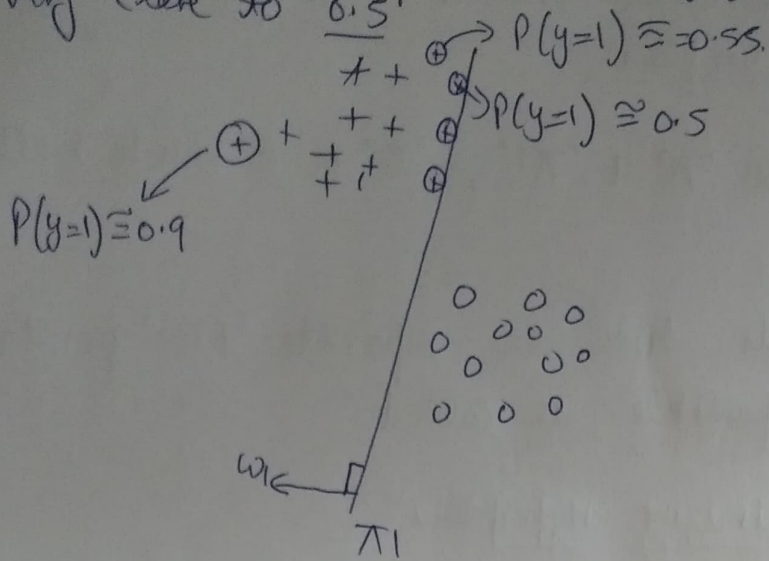 to 0.5
P(y=1) ≅ =0.55.
P(y=1) ≅ 0.5
P(y=1) ≅ 0.9
ω1
π1